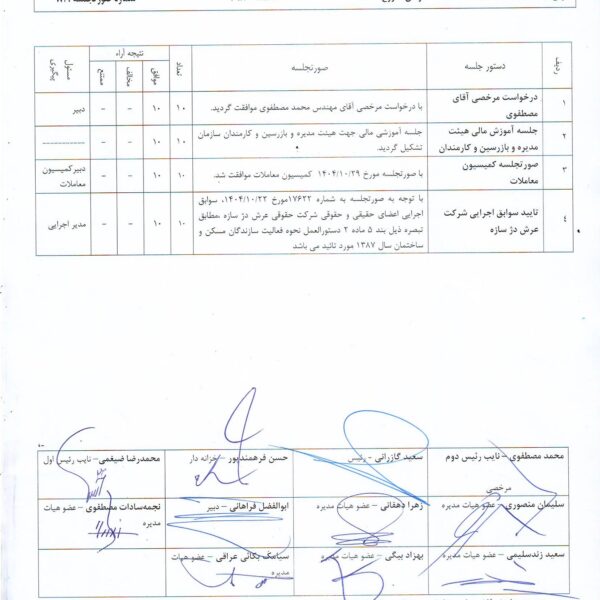 شماره صورتجلسه
ردیف
دستور جلسه
صورتجلسه
تعداد
نتیجه آراء
موافق
مخالف
ممتنع
مسئول پیگیری
۱
درخواست مرخصی آقای
مصطفوی
با درخواست مرخصی آقای مهندس محمد مصطفوی موافقت گردید.
۱۰
۱۰
-
-
دبیر
۲
جلسه آموزش مالی هیئت
مدیره و بازرسین و کارمندان
جلسه آموزشی مالی جهت هیئت مدیره و بازرسین و کارمندان سازمان
تشکیل گردید.
۱۰
۱۰
-
-
----------
۳
صورتجلسه کمیسیون
معاملات
با صورتجلسه مورخ ۱۴۰۴/۱۰/۲۹ کمیسیون معاملات موافقت شد.
۱۰
۱۰
-
-
دبیرکمیسیون
معاملات
۴
تایید سوابق اجرایی شرکت
عرش دژ سازه
با توجه به صورتجلسه به شماره ۱۷۶۲۲مورخ ۱۴۰۴/۱۰/۲۲، سوابق
اجرایی اعضای حقیقی و حقوقی شرکت حقوقی عرش دژ سازه ،مطابق
تبصره ذیل بند ۵ ماده ۲ دستورالعمل نحوه فعالیت سازندگان مسکن و
ساختمان سال ۱۳۸۷ مورد تائید می باشد
۱۰
۱۰
-
-
مدیر اجرایی
محمد مصطفوی – نایب رئیس دوم
مرخصی
سعید گازرانی – رئیس
حسن فرهمندپور – خزانه دار
محمدرضا ضیغمی – نایب رئیس اول
سلیمان منصوری – عضو هیات مدیره
زهرا دهقانی – عضو هیات مدیره
ابوالفضل فراهانی – دبیر
نجمه‌سادات مصطفوی – عضو هیات
مدیره
سعید زندسلیمی – عضو هیات مدیره
بهزاد بیگی – عضو هیات مدیره
سیامک یکانی عراقی – عضو هیات
مدیره